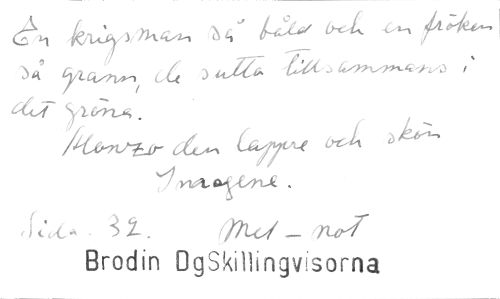 En krigsman så båld och en fröken
så grann, de sutto tillsammans i
det gröna.
Alonzo den tappre och skön
Imogene.
Sida. 32. Mel - not
Brodin DgSkillingvisorna